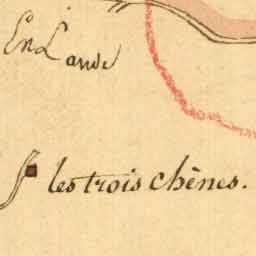 En Lande
les trois chênes.